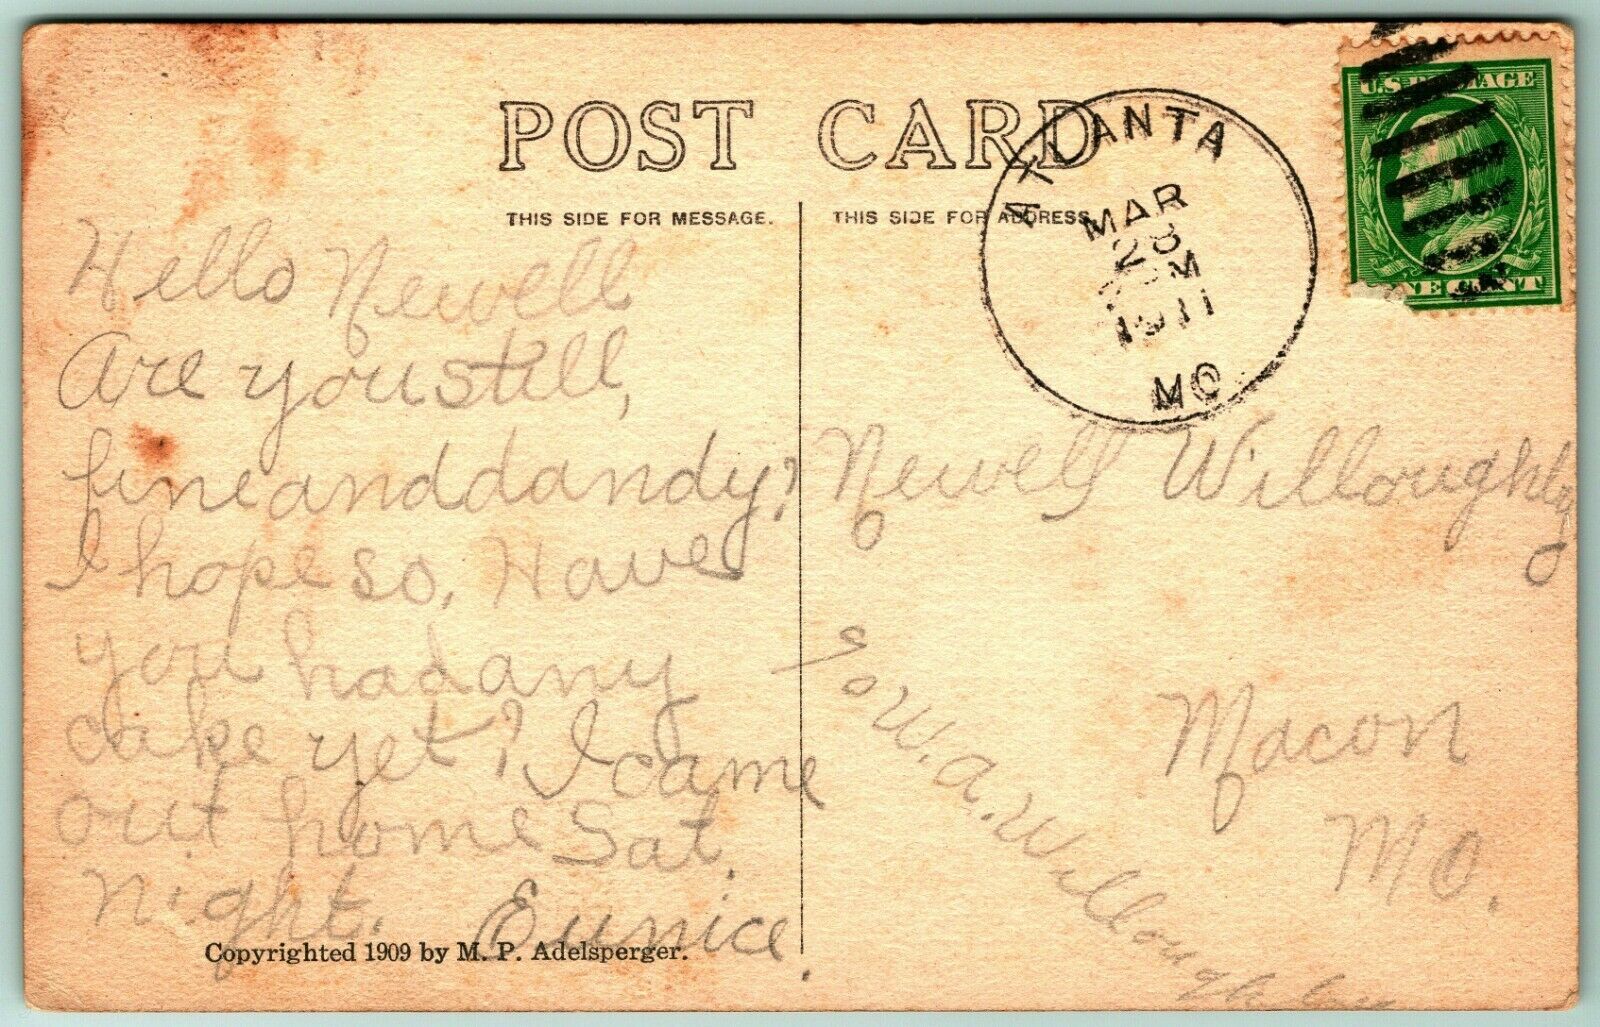 POST CARD
THIS SIDE FOR MESSAGE.
THIS SIDE FOR ADDRESS.
ATLANTA
MAR
28
M
1911
MO
U.S. POSTAGE
ONE CENT
Hello Newell
Are you still,
fine and dandy?
I hope so, Have
you had any
cake yet? I came
out home Sat.
Night. Eunice.
Copyrighted 1909 by M. P. Adelsperger.
Newell Willoughby
Macon
Mo.
W. A. Willoughby